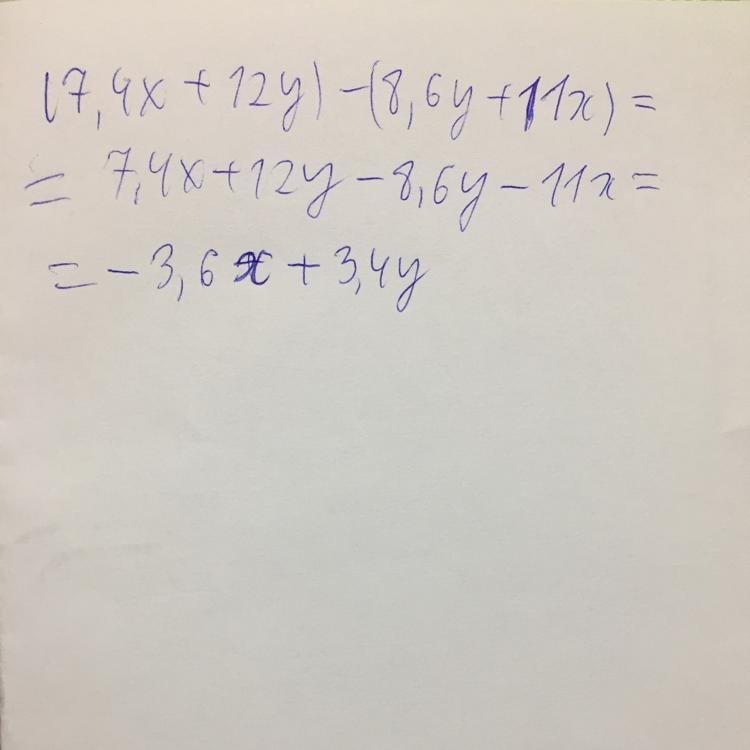 (7,4x + 12y) - (8,6y + 11x) =
= 7,4x + 12y - 8,6y - 11x =
= - 3,6x + 3,4y